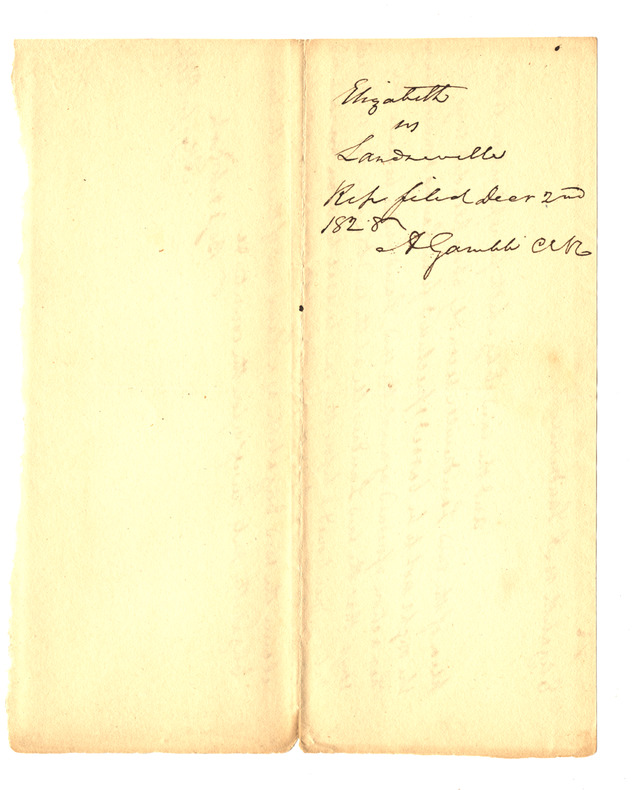 Elizabeth
vs
Landreville
Rep filed Decr 2nd
1828
A Gamble Clk